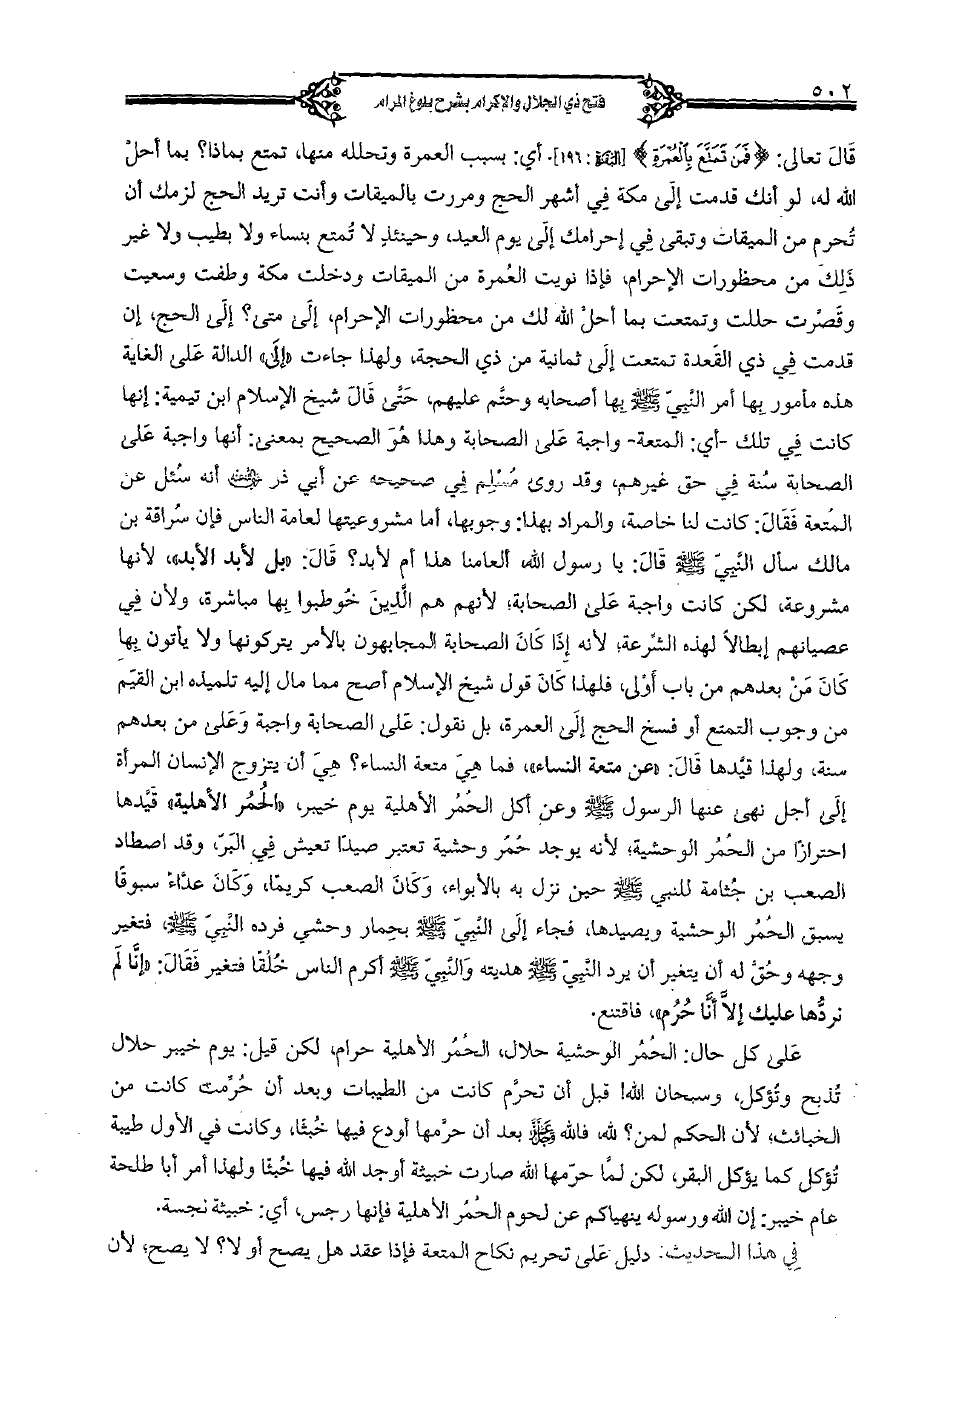 ٥٠٢
فتح ذي الجلال والإكرام بشرح بلوغ المرام
قَالَ تعالى: ﴿فَمَن تَمَتَّعَ بِالْعُمْرَةِ﴾ [البقرة: ١٩٦]. أي: بسبب العمرة وتحلله منها، تمتع بماذا؟ بما أحلّ
الله له، لو أنك قدمت إلَىٰ مكة فِي أشهر الحج ومررت بالميقات وأنت تريد الحج لزمك أن
تُحرم من الميقات وتبقى فِي إحرامك إلَىٰ يوم العيد، وحينئذٍ لا تُمتع بنساء ولا بطيب ولا غير
ذَلِكَ من محظورات الإحرام، فإذا نويت العُمرة من الميقات ودخلت مكة وطفت وسعيت
وقصَّرت حللت وتمتعت بما أحلَّ الله لك من محظورات الإحرام، إلَىٰ متىٰ؟ إلَىٰ الحج، إن
قدمت فِي ذي القَعدة تمتعت إلَىٰ ثمانية من ذي الحجة، ولهذا جاءت «إلَىٰ» الدالة عَلَىٰ الغاية
هذه مأمور بِها أمر النَّبِيّ ﷺ بِها أصحابه وحتَّم عليهم، حَتَّىٰ قَالَ شيخ الإسلام ابن تيمية: إنها
كانت فِي تلك -أي: المتعة- واجبة عَلَىٰ الصحابة وهذا هُوَ الصحيح بمعنىٰ: أنها واجبة عَلَىٰ
الصحابة سُنة فِي حق غيرهم، وقد روىٰ مُسْلِم فِي صحيحه عن أبي ذر رضي الله عنه أنه سُئل عن
المُتعة فَقَالَ: كانت لنا خاصة، والمراد بهذا: وجوبها، أما مشروعيتها لعامة الناس فإن سُراقة بن
مالك سأل النَّبِيّ ﷺ قَالَ: يا رسول الله، ألعامنا هذا أم لأبد؟ قَالَ: «بل لأبد الأبد»، لأنها
مشروعة، لكن كانت واجبة عَلَىٰ الصحابة؛ لأنهم هم الَّذِينَ خُوطبوا بِها مباشرة، ولأن فِي
عصيانهم إبطالاً لهذه الشِّرعة؛ لأنه إذَا كَانَ الصحابة المجابهون بالأمر يتركونها ولا يأتون بِها
كَانَ مَنْ بعدهم من باب أَوْلىٰ، فلهذا كَانَ قول شيخ الإسلام أصح مما مال إليه تلميذه ابن القيِّم
من وجوب التمتع أو فسخ الحج إلَىٰ العمرة، بل نقول: عَلَىٰ الصحابة واجبة وَعَلَىٰ من بعدهم
سنة، ولهذا قيَّدها قَالَ: «عن متعة النساء»، فما هِيَ متعة النساء؟ هِيَ أن يتزوج الإنسان المرأة
إلَىٰ أجل نهى عنها الرسول ﷺ وعن أكل الحُمُر الأهلية يوم خيبر، «الحُمُر الأهلية» قَيَّدها
احترازًا من الحُمُر الوحشية؛ لأنه يوجد حُمُرٌ وحشية تعتبر صيدًا تعيش فِي البَرّ، وقد اصطاد
الصعب بن جُثامة للنبي ﷺ حين نزل به بالأبواء، وَكَانَ الصعب كريمًا، وَكَانَ عدَّاءً سبوقًا
يسبق الحُمُر الوحشية ويصيدها، فجاء إلَىٰ النَّبِيّ ﷺ بحمار وحشي فرده النَّبِيّ ﷺ، فتغير
وجهه وحُقَّ له أن يتغير أن يرد النَّبِيّ ﷺ هديته وَالنَّبِيّ ﷺ أكرم الناس خُلُقًا فتغير فَقَالَ: «إنَّا لَم
نردُّها عليك إلاَّ أنَّا حُرُم»، فاقتنع.
عَلَىٰ كل حال: الحُمُر الوحشية حلال، الحُمُر الأهلية حرام، لكن قبل: يوم خيبر حلال
تُذبح وتُؤكل، وسبحان الله! قبل أن تحرَّم كانت من الطيبات وبعد أن حُرِّمت كانت من
الخبائث؛ لأن الحكم لمن؟ لله، فالله ﷻ بعد أن حرَّمها أودع فيها خُبثًا، وكانت في الأول طيبة
تُؤكل كما يؤكل البقر، لكن لمَّا حرَّمها الله صارت خبيثة أوجد الله فيها خُبثًا ولهذا أمر أبا طلحة
عام خيبر: إن الله ورسوله ينهياكم عن لحوم الحُمُر الأهلية فإنها رجس، أي: خبيثة نجسة.
فِي هذا الحديث: دليل عَلَىٰ تحريم نكاح المتعة فإذا عقد هل يصح أو لا؟ لا يصح؛ لأن